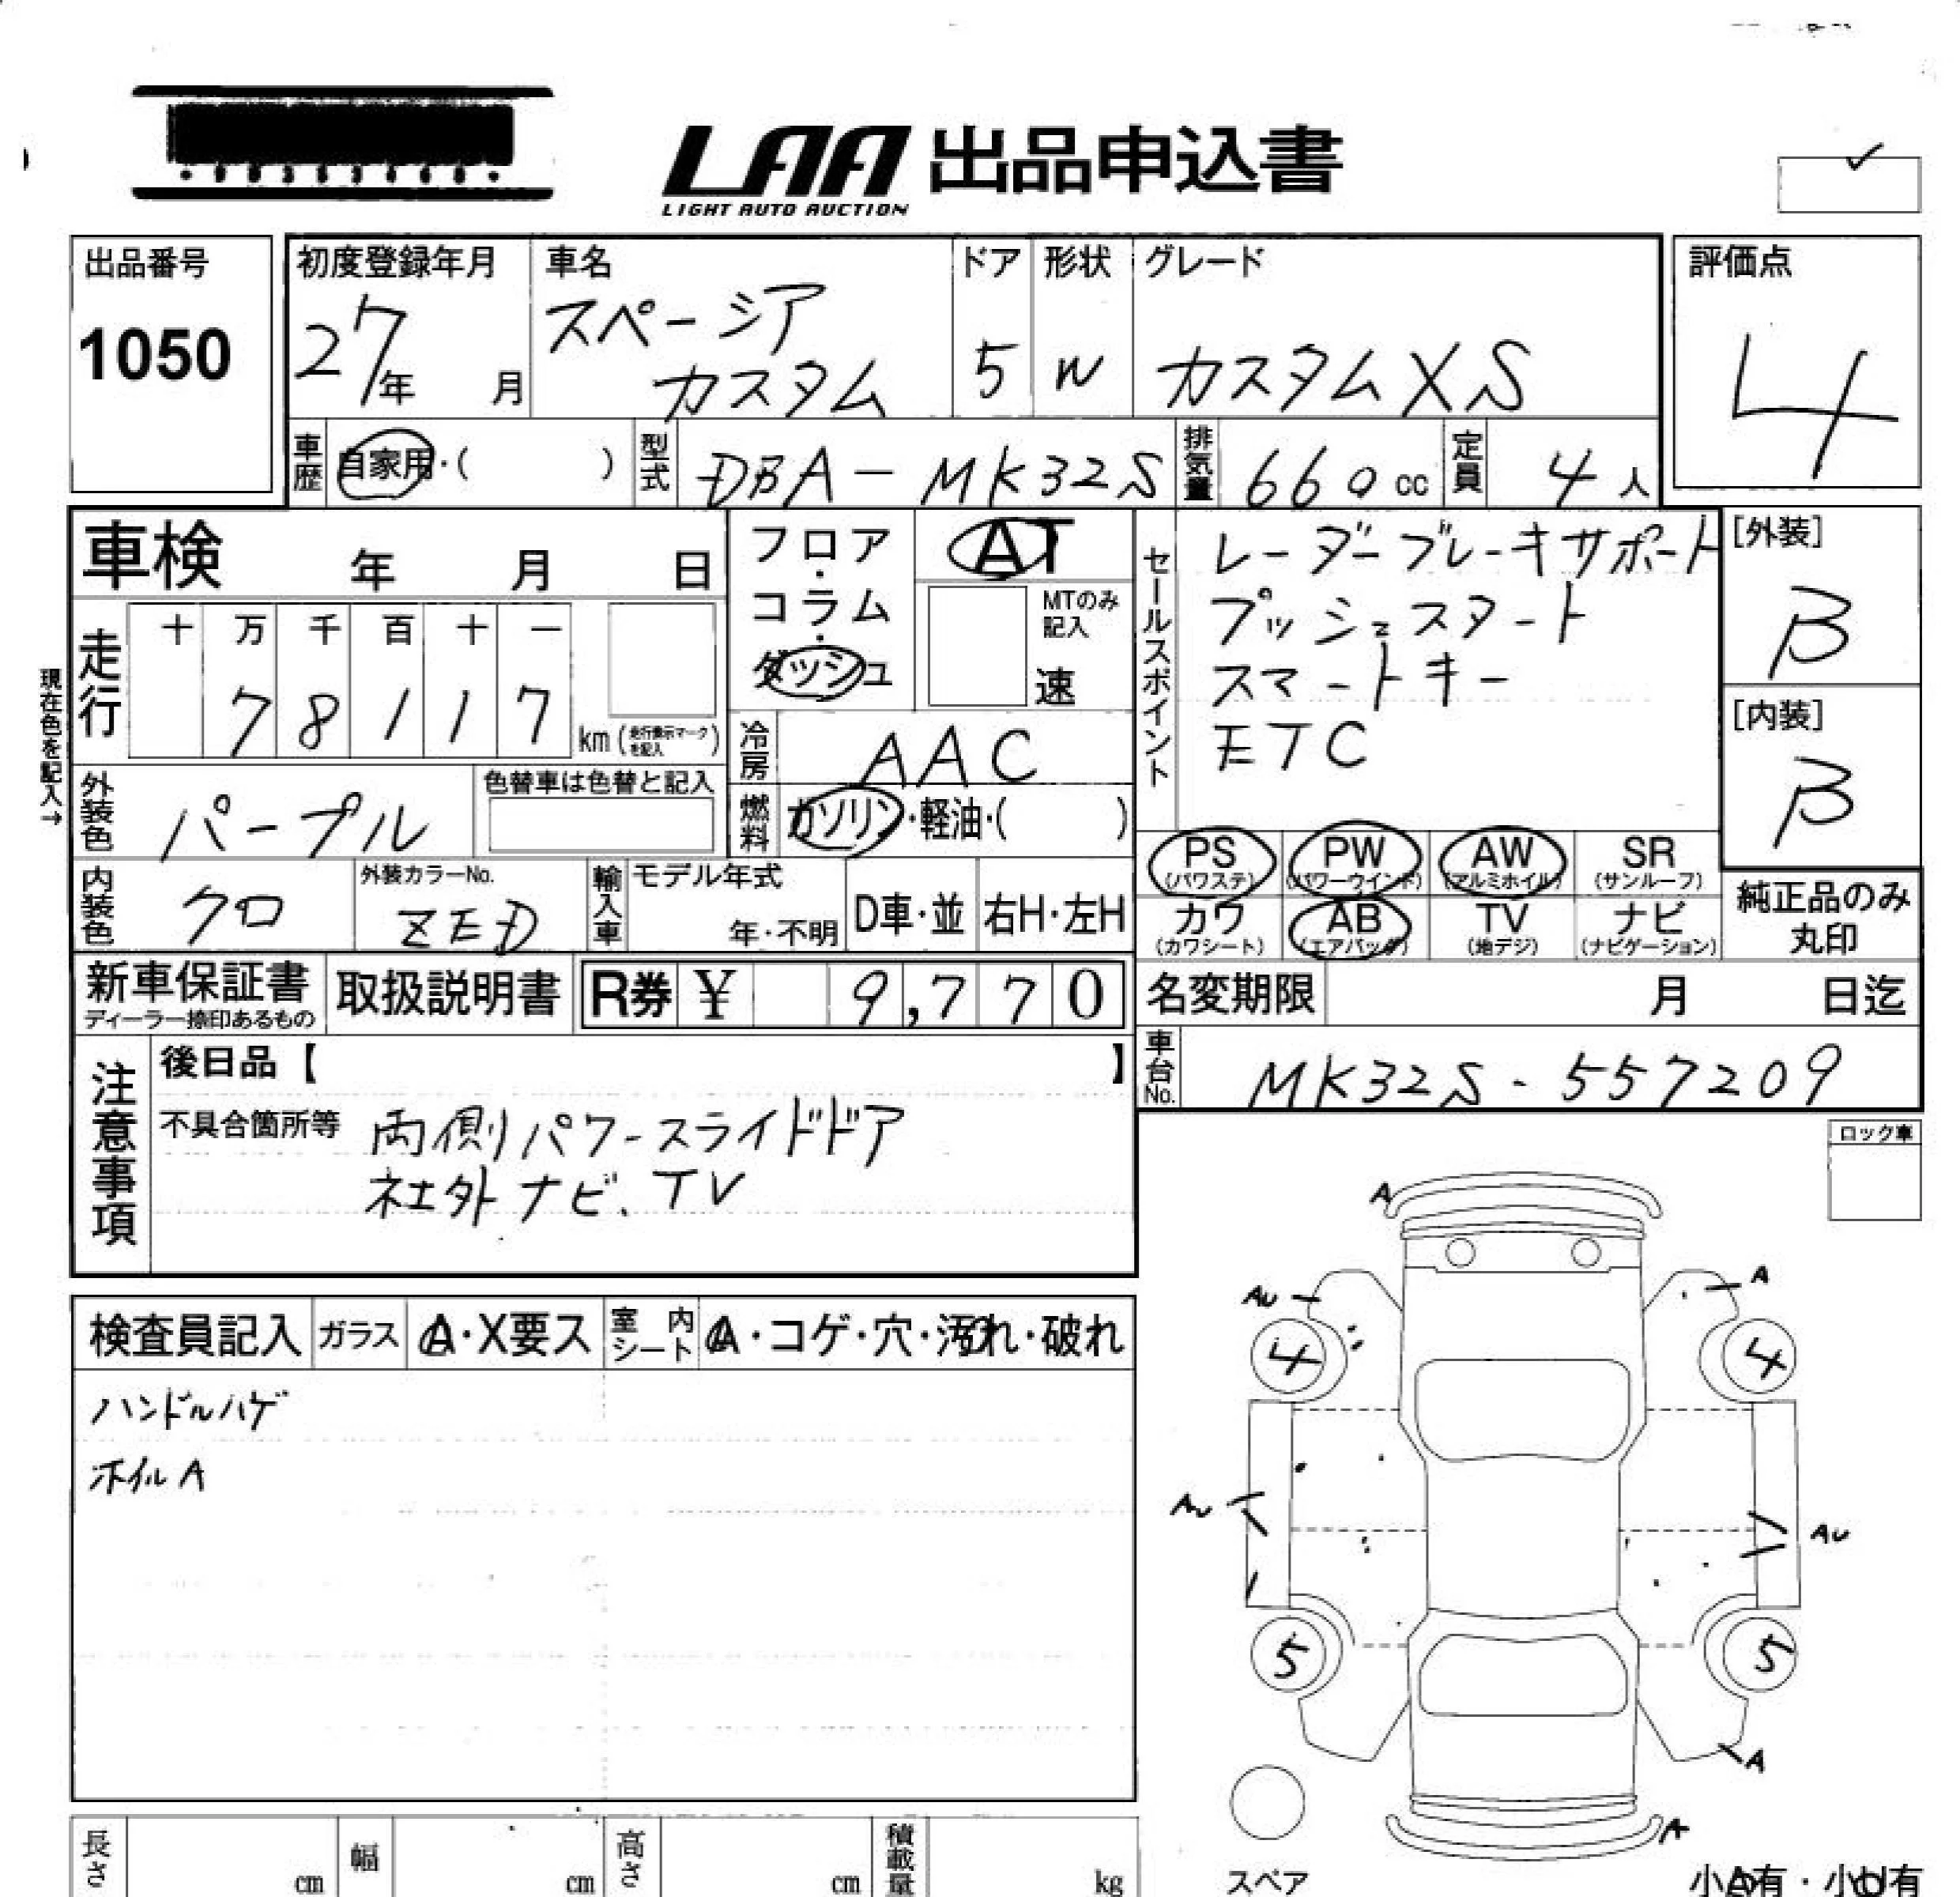 LAA 出品申込書
LIGHT AUTO AUCTION
出品番号
1050
初度登録年月
27年 月
車名
スペーシア
カスタム
ドア
5
形状
W
グレード
カスタムXS
評価点
4
車歴 自家用・( )
型式 DBA-MK32S
排気量 660cc
定員 4人
車検 年 月 日
走行
十 万 千 百 十 一
7 8 1 1 7 km(走行表示マークを記入)
現在色を記入→
外装色 パープル
色替車は色替と記入
内装色 クロ
外装カラーNo.
ZED
フロア・コラム・ダッシュ
AT
MTのみ記入
速
冷房 AAC
燃料 ガソリン・軽油・( )
輸入車
モデル年式
年・不明
D車・並
右H・左H
セールスポイント
レーダーブレーキサポート
プッシュスタート
スマートキー
ETC
[外装]
B
[内装]
B
PS (パワステ)
PW (パワーウインド)
AW (アルミホイル)
SR (サンルーフ)
カワ (カワシート)
AB (エアバッグ)
TV (地デジ)
ナビ (ナビゲーション)
純正品のみ
丸印
新車保証書
ディーラー捺印あるもの
取扱説明書
R券 ¥ 9,770
名変期限 月 日迄
車台No. MK32S-557209
注意事項
後日品【 】
不具合箇所等 両側パワースライドドア
社外ナビ.TV
ロック車
検査員記入
ガラス A・X要ス
室内シート A・コゲ・穴・汚れ・破れ
ハンドルハゲ
ホイルA
A
AU
A
4
4
AU
AU
5
5
A
A
スペア
小A有・小U有
長さ cm
幅 cm
高さ cm
積載量 kg